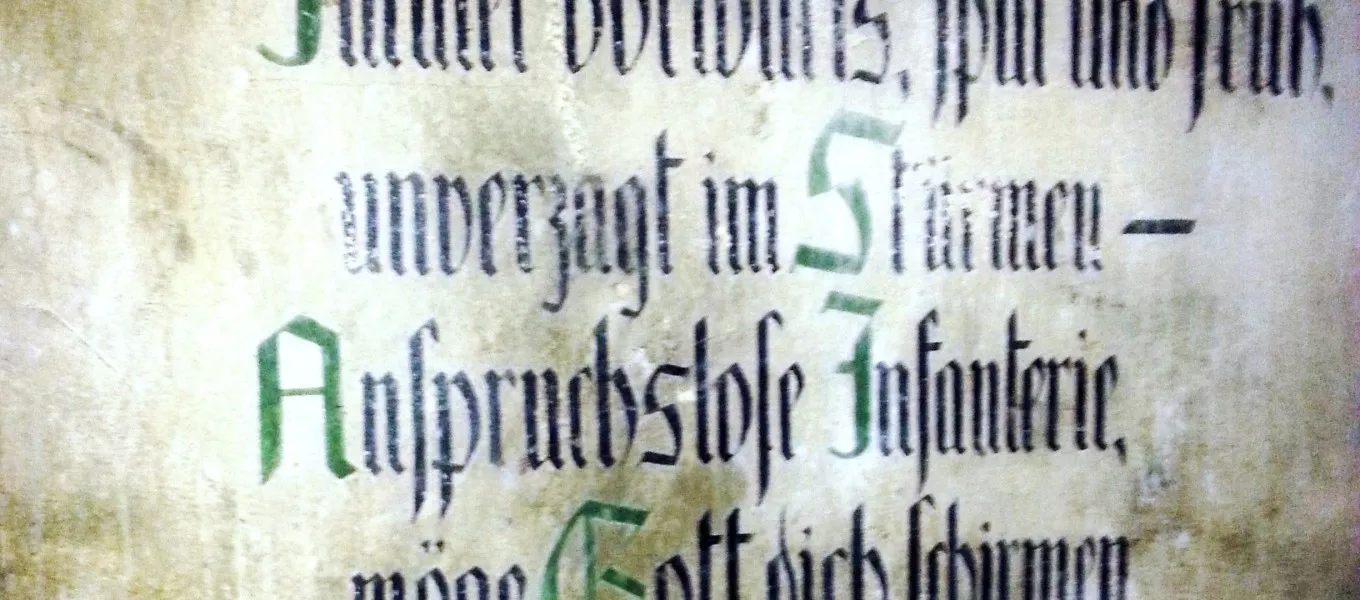 Immer vorwärts, spät und früh,
unverzagt im Stürmen —
Anspruchslose Infanterie,
möge Gott dich schirmen